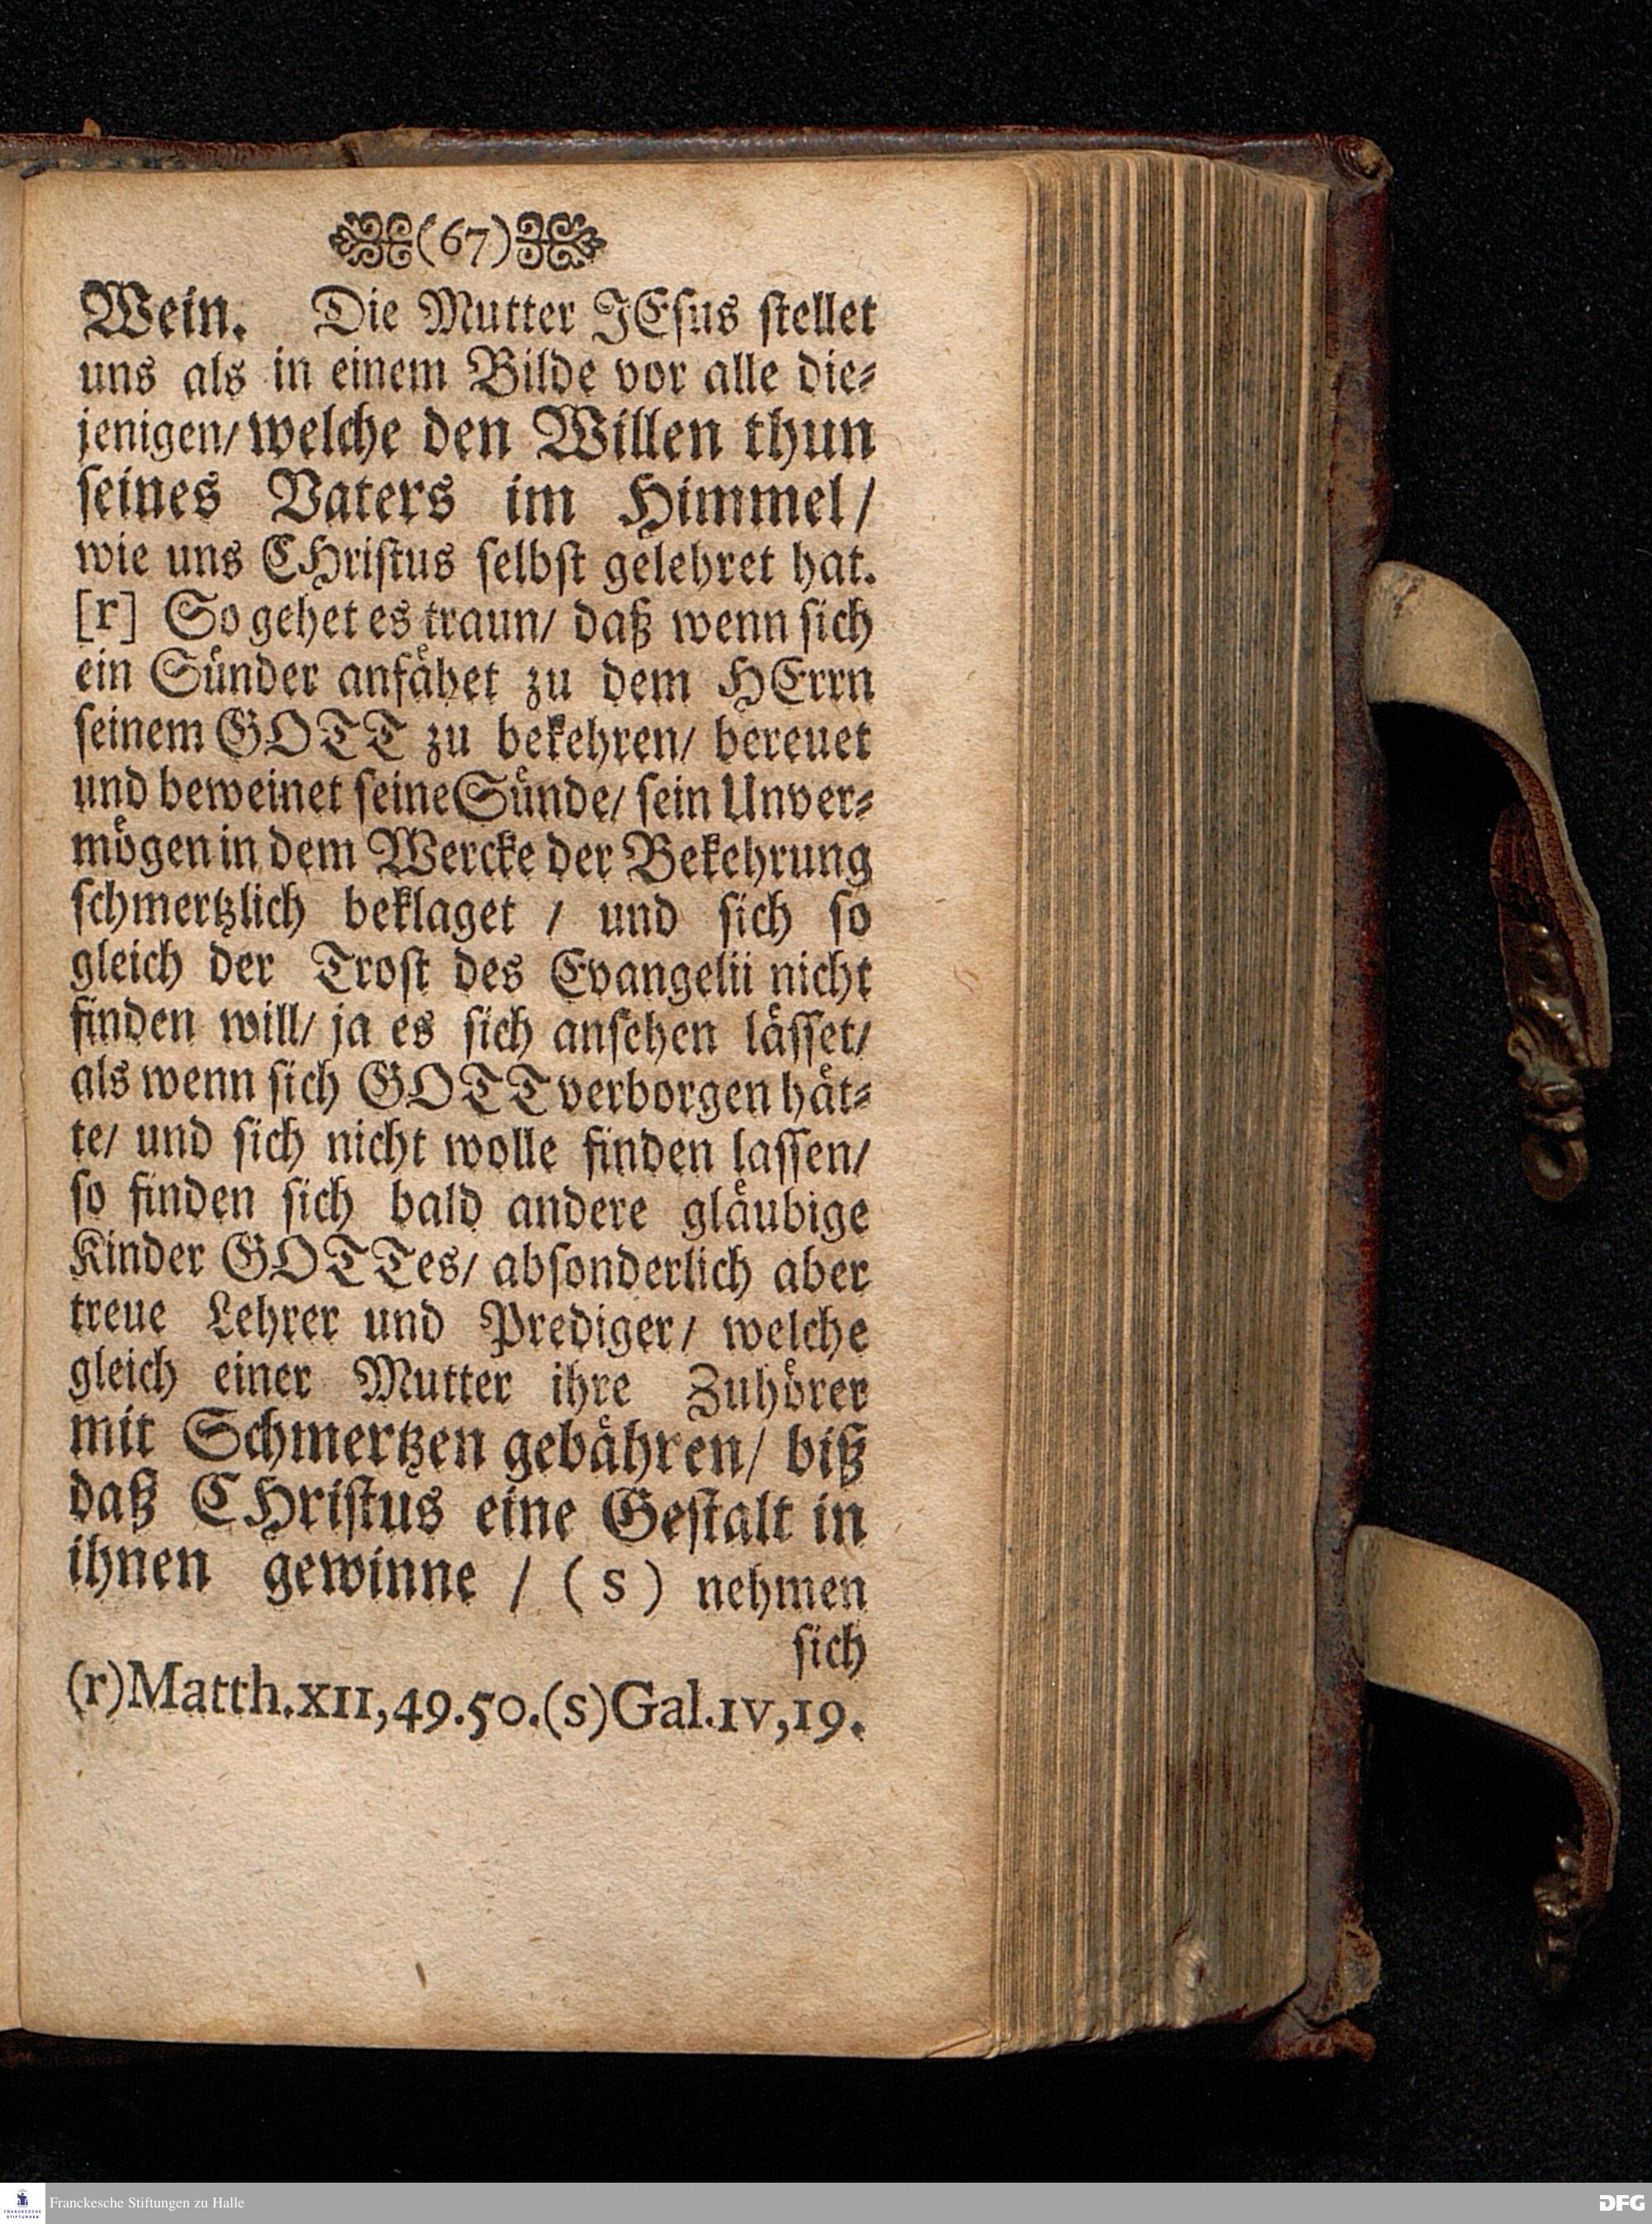 (67)
Wein. Die Mutter JEsus stellet
uns als in einem Bilde vor alle die-
jenigen/ welche den Willen thun
seines Vaters im Himmel/
wie uns CHristus selbst gelehret hat.
[r] So gehet es traun/ daß wenn sich
ein Sünder anfähet zu dem HErrn
seinem GOTT zu bekehren/ bereuet
und beweinet seine Sünde/ sein Unver-
mögen in dem Wercke der Bekehrung
schmertzlich beklaget / und sich so
gleich der Trost des Evangelii nicht
finden will/ ja es sich ansehen lässet/
als wenn sich GOTT verborgen hät-
te/ und sich nicht wolle finden lassen/
so finden sich bald andere gläubige
Kinder GOTTes/ absonderlich aber
treue Lehrer und Prediger/ welche
gleich einer Mutter ihre Zuhörer
mit Schmertzen gebähren/ biß
daß CHristus eine Gestalt in
ihnen gewinne / (s) nehmen
sich
(r)Matth.XII,49.50.(s)Gal.IV,19.
FRANCKESCHE
STIFTUNGEN
Franckesche Stiftungen zu Halle
DFG